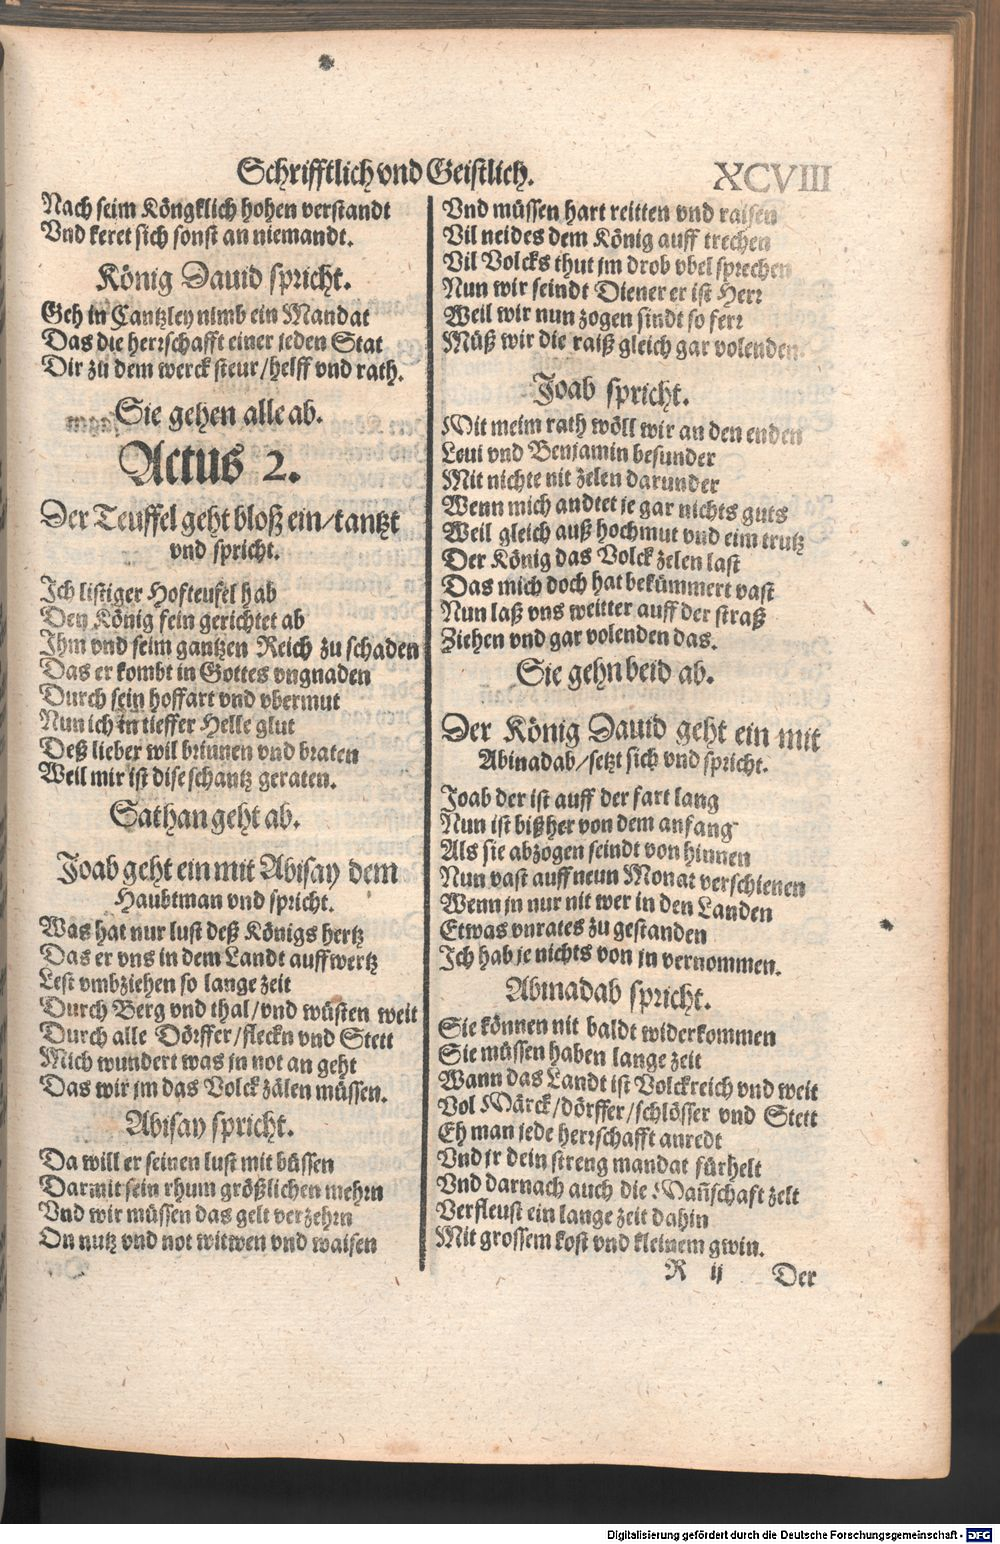 Schrifftlich vnd Geistlich. XCVIII
Nach seim Köngklich hohen verstandt
Vnd keret sich sonst an niemandt.
König Dauid spricht.
Geh in Cantzley nimb ein Mandat
Das die herrschafft einer jeden Stat
Dir zu dem werck steur/helff vnd rath.
Sie gehen alle ab.
Actus 2.
Der Teuffel geht bloß ein/tantzt
vnd spricht.
Ich listiger Hofteufel hab
Den König fein gerichtet ab
Ihm vnd seim gantzen Reich zu schaden
Das er kombt in Gottes vngnaden
Durch sein hoffart vnd vbermut
Nun ich in tieffer Helle glut
Deß lieber wil brinnen vnd braten
Weil mir ist dise schantz geraten.
Sathan geht ab.
Joab geht ein mit Abisay dem
Haubtman vnd spricht.
Was hat nur lust deß Königs hertz
Das er vns in dem Landt auffwertz
Lest vmbziehen so lange zeit
Durch Berg vnd thal/vnd wüsten weit
Durch alle Dörffer/fleckn vnd Stett
Mich wundert was jn not an geht
Das wir jm das Volck zälen müssen.
Abisay spricht.
Da will er seinen lust mit büssen
Darmit sein rhum größlichen mehrn
Vnd wir müssen das gelt verzehrn
On nutz vnd not witwen vnd waisen
Vnd müssen hart reitten vnd raisen
Vil neides dem König auff trechen
Vil Volcks thut jm drob vbel sprechen
Nun wir seindt Diener er ist Herr
Weil wir nun zogen sindt so ferr
Müß wir die raiß gleich gar volenden.
Joab spricht.
Mit meim rath wöll wir an den enden
Leui vnd Benjamin besunder
Mit nichte nit zelen darunder
Wenn mich andtet je gar nichts guts
Weil gleich auß hochmut vnd eim trutz
Der König das Volck zelen last
Das mich doch hat bekümmert vast
Nun laß vns weitter auff der straß
Ziehen vnd gar volenden das.
Sie gehn beid ab.
Der König Dauid geht ein mit
Abinadab/setzt sich vnd spricht.
Joab der ist auff der fart lang
Nun ist bißher von dem anfang
Als sie abzogen seindt von hinnen
Nun vast auff neun Monat verschienen
Wenn jn nur nit wer in den Landen
Etwas vnrates zu gestanden
Ich hab je nichts von jn vernommen.
Abinadab spricht.
Sie können nit baldt widerkommen
Sie müssen haben lange zeit
Wann das Landt ist Volckreich vnd weit
Vol Märck/dörffer/schlösser vnd Stett
Eh man jede herrschafft anredt
Vnd jr dein streng mandat fürhelt
Vnd darnach auch die Mañschaft zelt
Verfleust ein lange zeit dahin
Mit grossem kost vnd kleinem gwin.
R ij Der
Digitalisierung gefördert durch die Deutsche Forschungsgemeinschaft - DFG